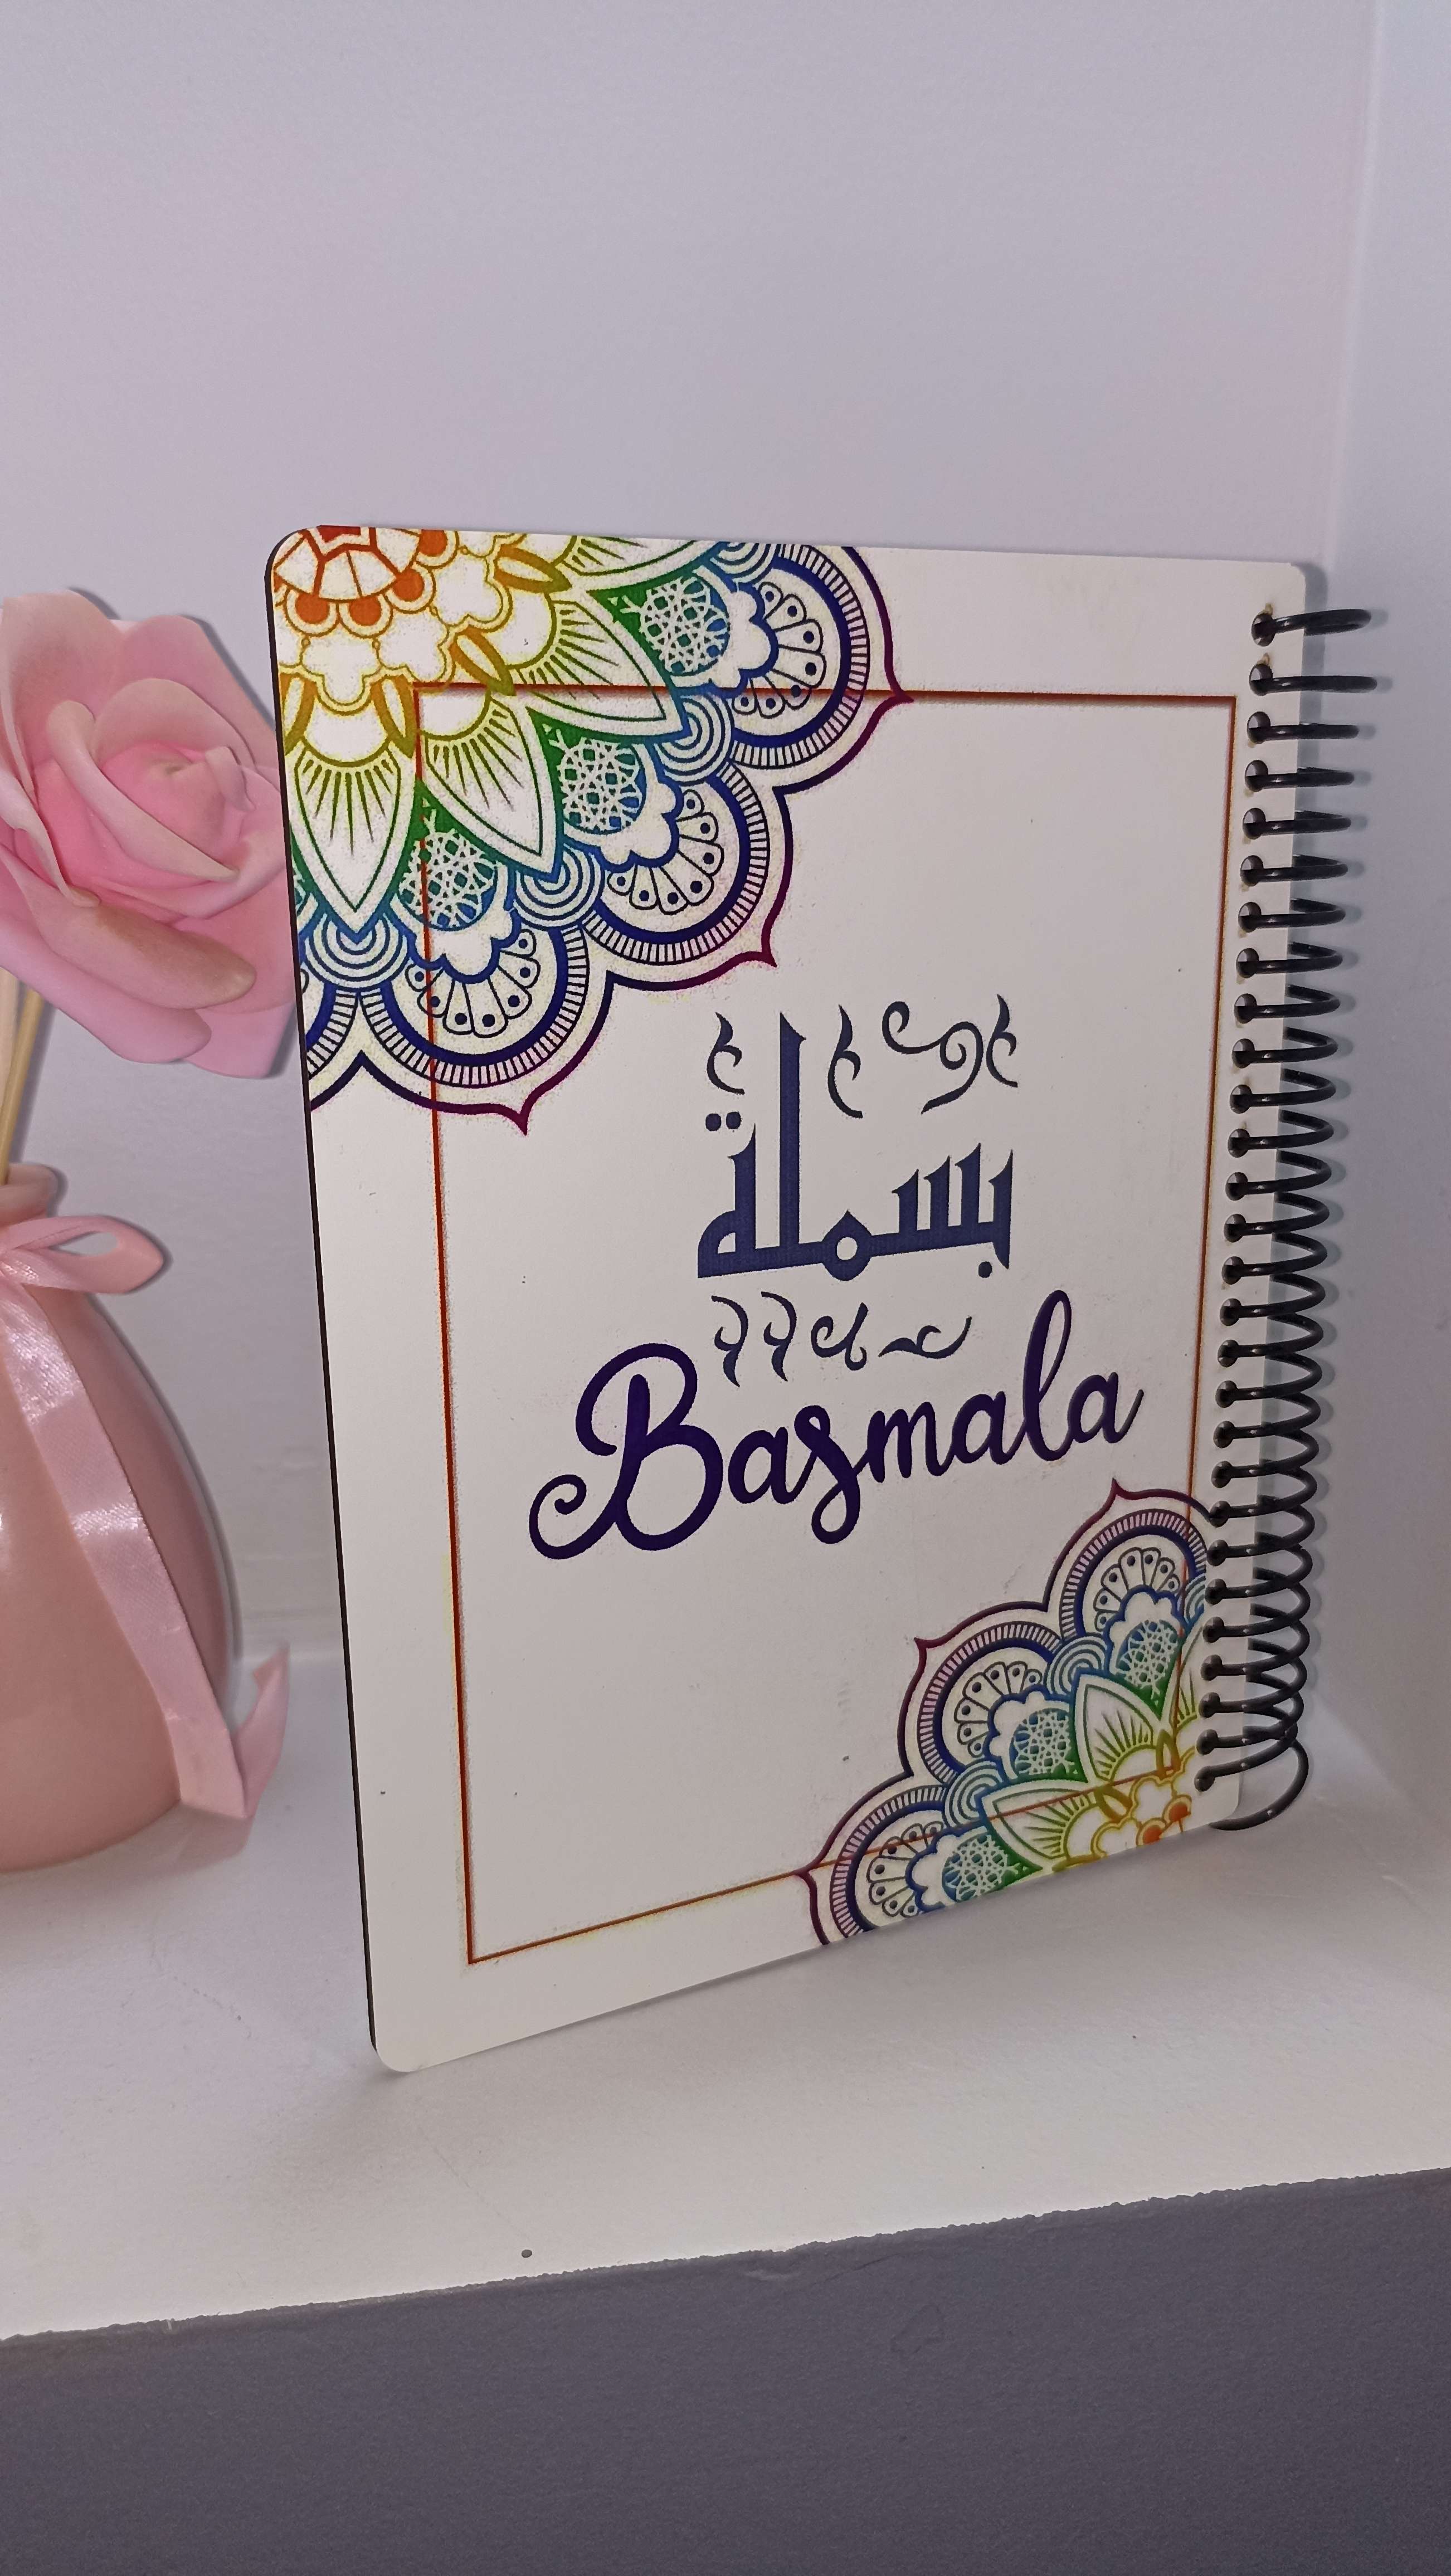 بسملة
Basmala